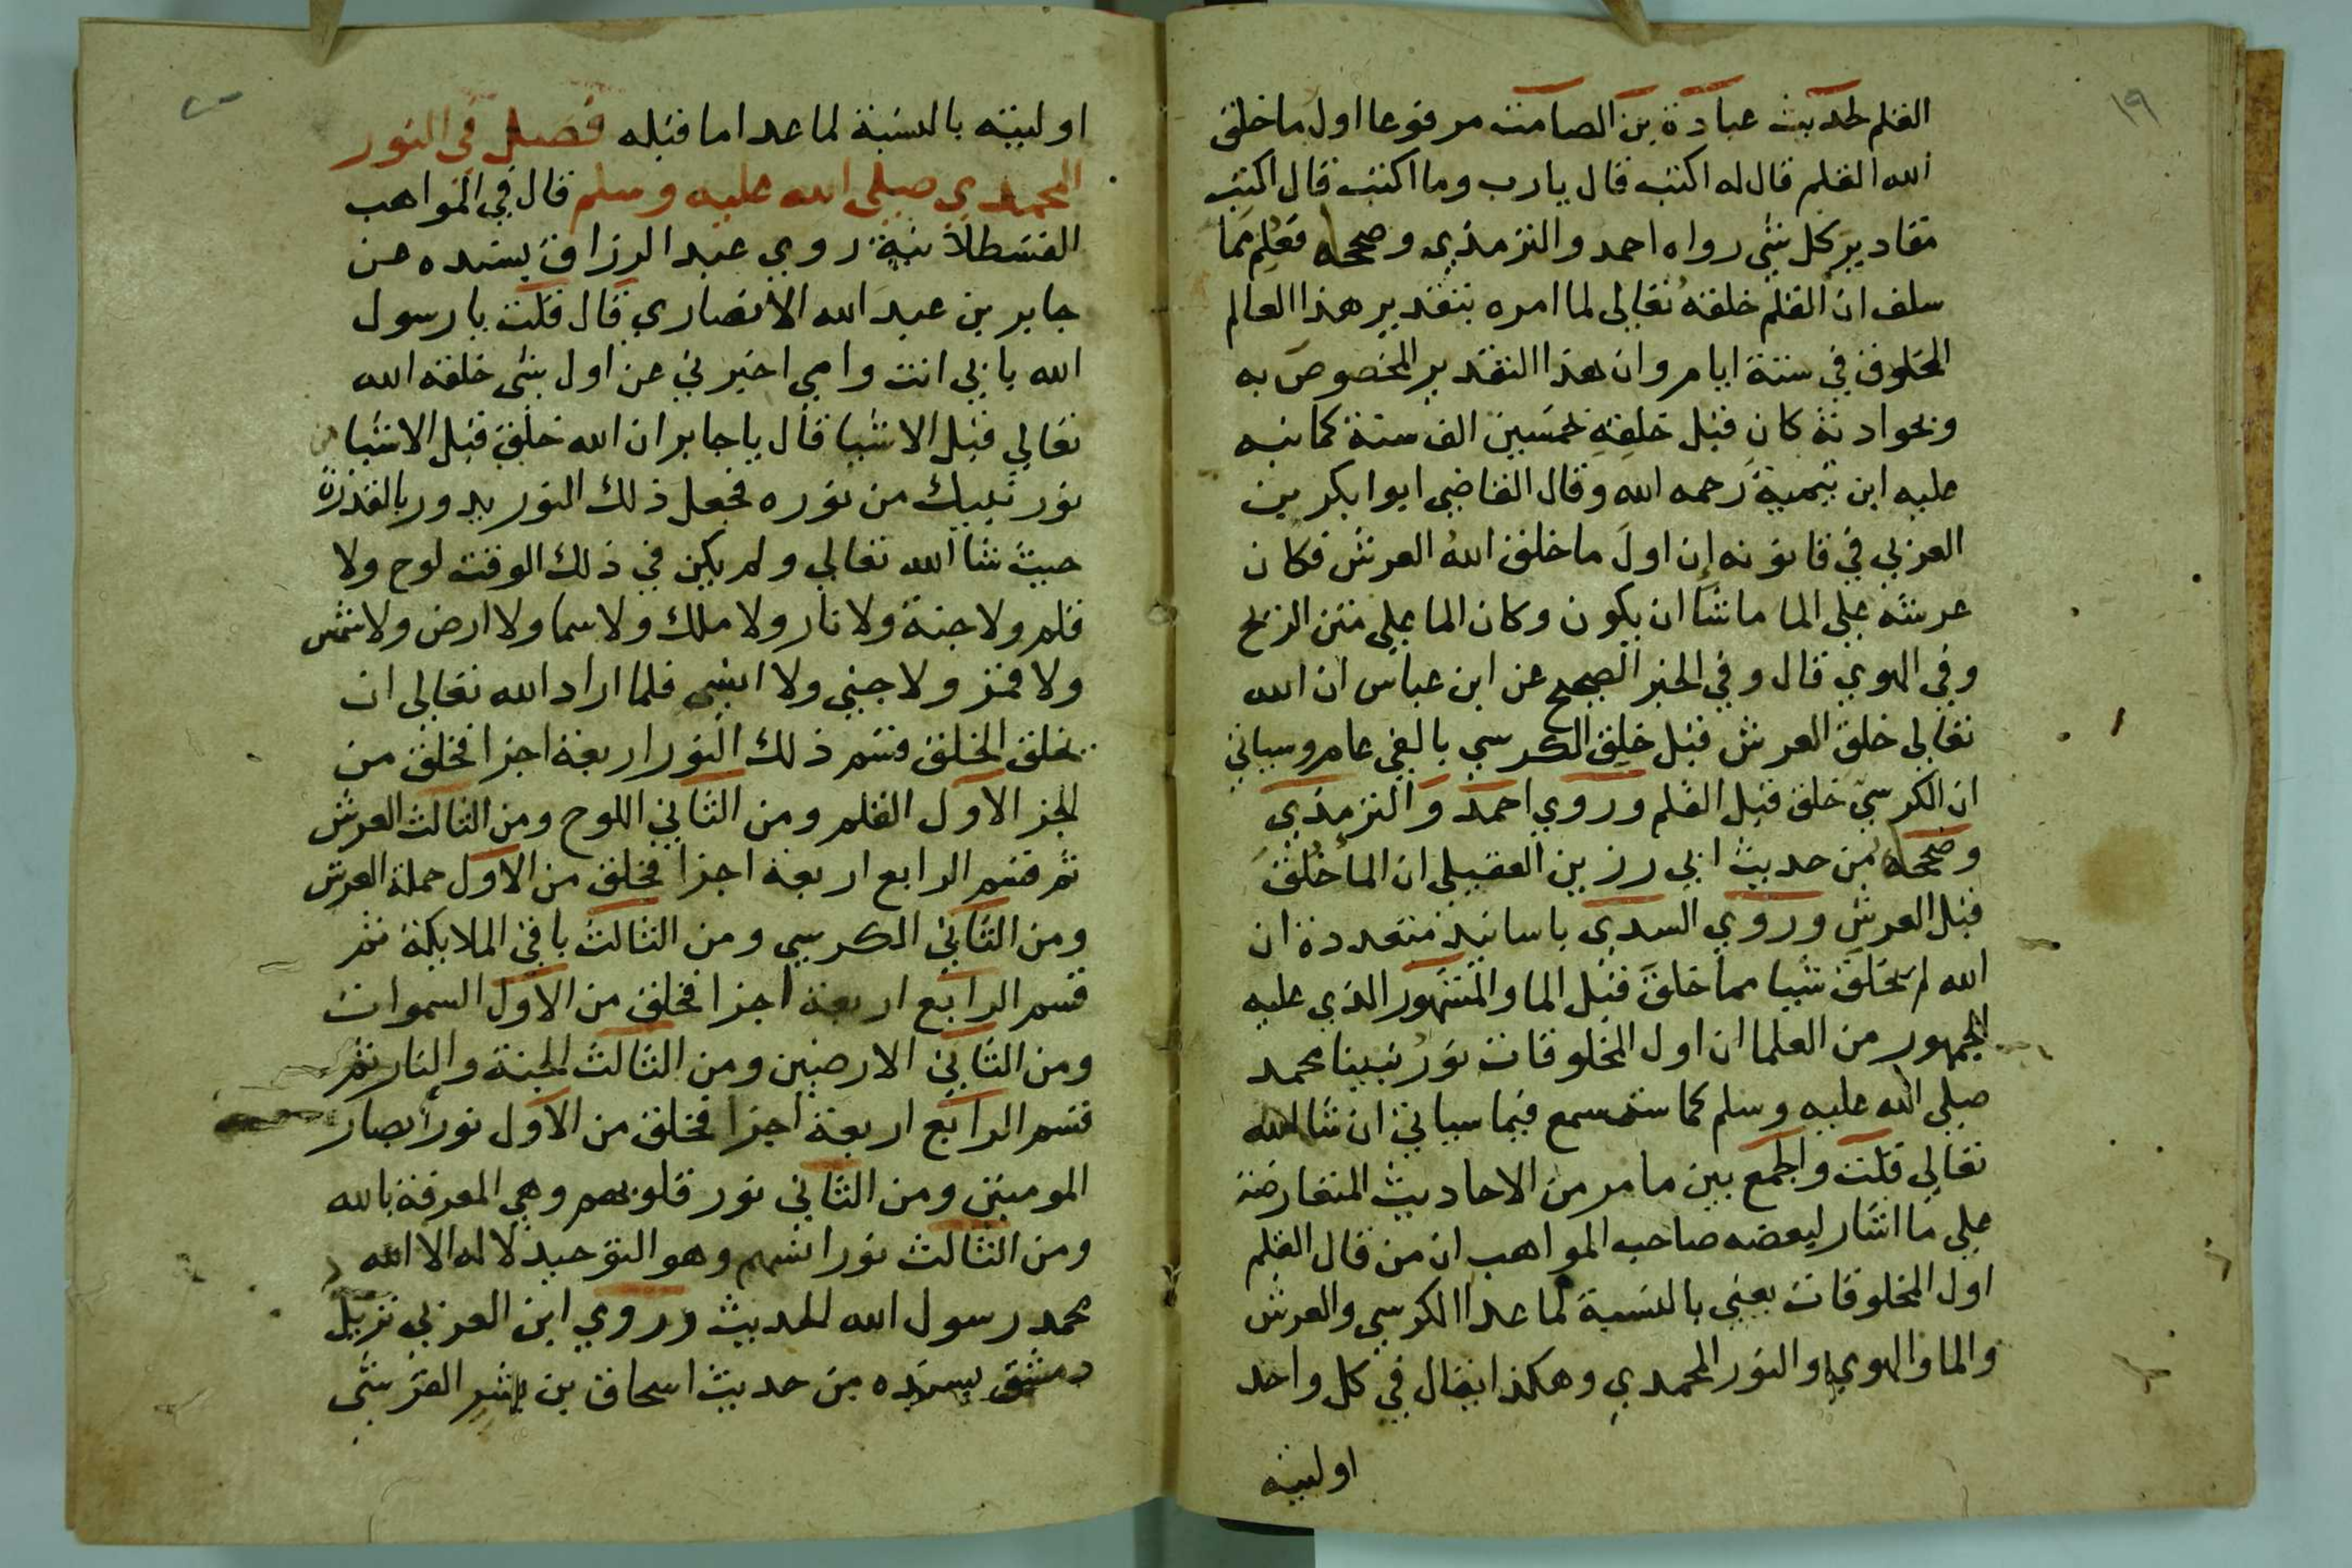 ١٩
القلم لحديث عبادة بن الصامت مرفوعا اول ما خلق
الله القلم قال له اكتب قال يارب وما اكتب قال اكتب
مقادير كل شي رواه احمد والترمذي وصححه فعلم مما
سلف ان القلم خلقه تعالى لما امره بتقدير هذا العالم
المخلوق في ستة ايام وان هذا التقدير المخصوص به
وبحوادثه كان قبل خلقه خمسين الف سنة كما نبه
عليه ابن تيمية رحمه الله وقال القاضي ابوابكر بن
العربي في قانونه إن اولَ ما خلق اللهُ العرش فكان
عرشه على الما ما شا ان يكون وكان الما على متن الريح
وفي الهوي قال وفي الخبر الصحيح عن ابن عباس ان الله
تعالى خلق العرش قبل خلق الكرسي بالفي عام وسياتي
ان الكرسي خلق قبل القلم وروي احمد والترمذي
وصححه من حديث ابي رزين العقيلي ان الما خُلقَ
قبل العرش وروي السدي باسانيد متعددة ان
الله لم يخلق شيا مما خلقَ قبل الما والمشهور الذي عليه
الجمهور من العلما ان اول المخلوقات نورُ نبينا محمد
صلى الله عليه وسلم كما ستسمع فيما سياتي ان شا الله
تعالي قلت والجمع بين ما مر من الاحاديث المتعارضة
على ما اشار لبعضه صاحب المواهب ان من قال القلم
اول المخلوقات يعني بالنسبة لما عدا الكرسي والعرش
والما والهوي والنور المحمدي وهكذا يقال في كل واحد
اوليته
٢٠
اوليته بالنسبة لما عدا ما قبله فصل في النور
المحمدي صلى الله عليه وسلم قال في المواهب
القسطلانية روي عبد الرزاق بسنده عن
جابر بن عبد الله الانصاري قال قلت يا رسول
الله بابي انت وامي اخبرني عن اول شى خلقه الله
تعالي قبل الاشيا قال يا جابر ان الله خلق قبل الاشيا
نور نبيك من نوره فجعل ذلك النور يدور بالقدرة
حيث شا الله تعالي ولم يكن في ذلك الوقت لوح ولا
قلم ولا جنة ولا نار ولا ملك ولا سما ولا ارض ولا شمس
ولا قمر ولا جني ولا انسي فلما اراد الله تعالى ان
يخلق الخلق قسم ذلك النور اربعة اجزا فخلق من
الجز الاول القلم ومن الثاني اللوح ومن الثالث العرش
ثم قسم الرابع اربعة اجزا فخلق من الاول حملة العرش
ومن الثاني الكرسي ومن الثالث باقي الملايكة ثم
قسم الرابع اربعة اجزا فخلق من الاول السموات
ومن الثاني الارضين ومن الثالث الجنة والنار ثم
قسم الرابع اربعة اجزا فخلق من الاول نور ابصار
المومنين ومن الثاني نور قلوبهم وهي المعرفة بالله
ومن الثالث نور انسهم وهو التوحيد لا اله الا الله
محمد رسول الله الحديث وروي ابن العربي نزيل
دمشق بسنده من حديث اسحاق بن بشر القرشى